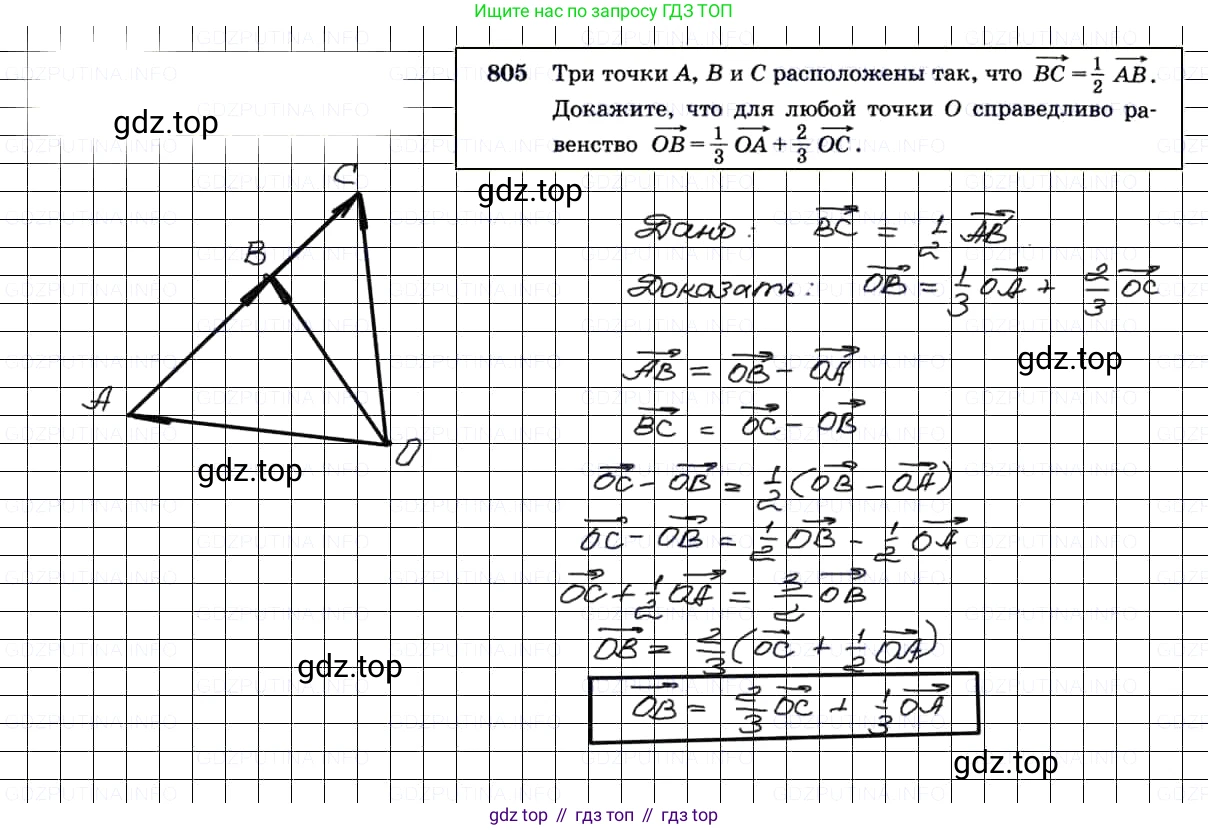 Ищите нас по запросу ГДЗ ТОП
805 Три точки A, B и C расположены так, что BC = 1/2 AB.
Докажите, что для любой точки O справедливо ра-
венство OB = 1/3 OA + 2/3 OC.
gdz.top
gdz.top
C
Дано: BC = 1/2 AB
B
Доказать: OB = 1/3 OA + 2/3 OC
gdz.top
AB = OB - OA
A
BC = OC - OB
O
gdz.top
OC - OB = 1/2 (OB - OA)
OC - OB = 1/2 OB - 1/2 OA
OC + 1/2 OA = 3/2 OB
OB = 2/3 (OC + 1/2 OA)
gdz.top
OB = 2/3 OC + 1/3 OA
gdz.top
gdz top // гдз топ // gdz top
GDZPUTINA.INFO